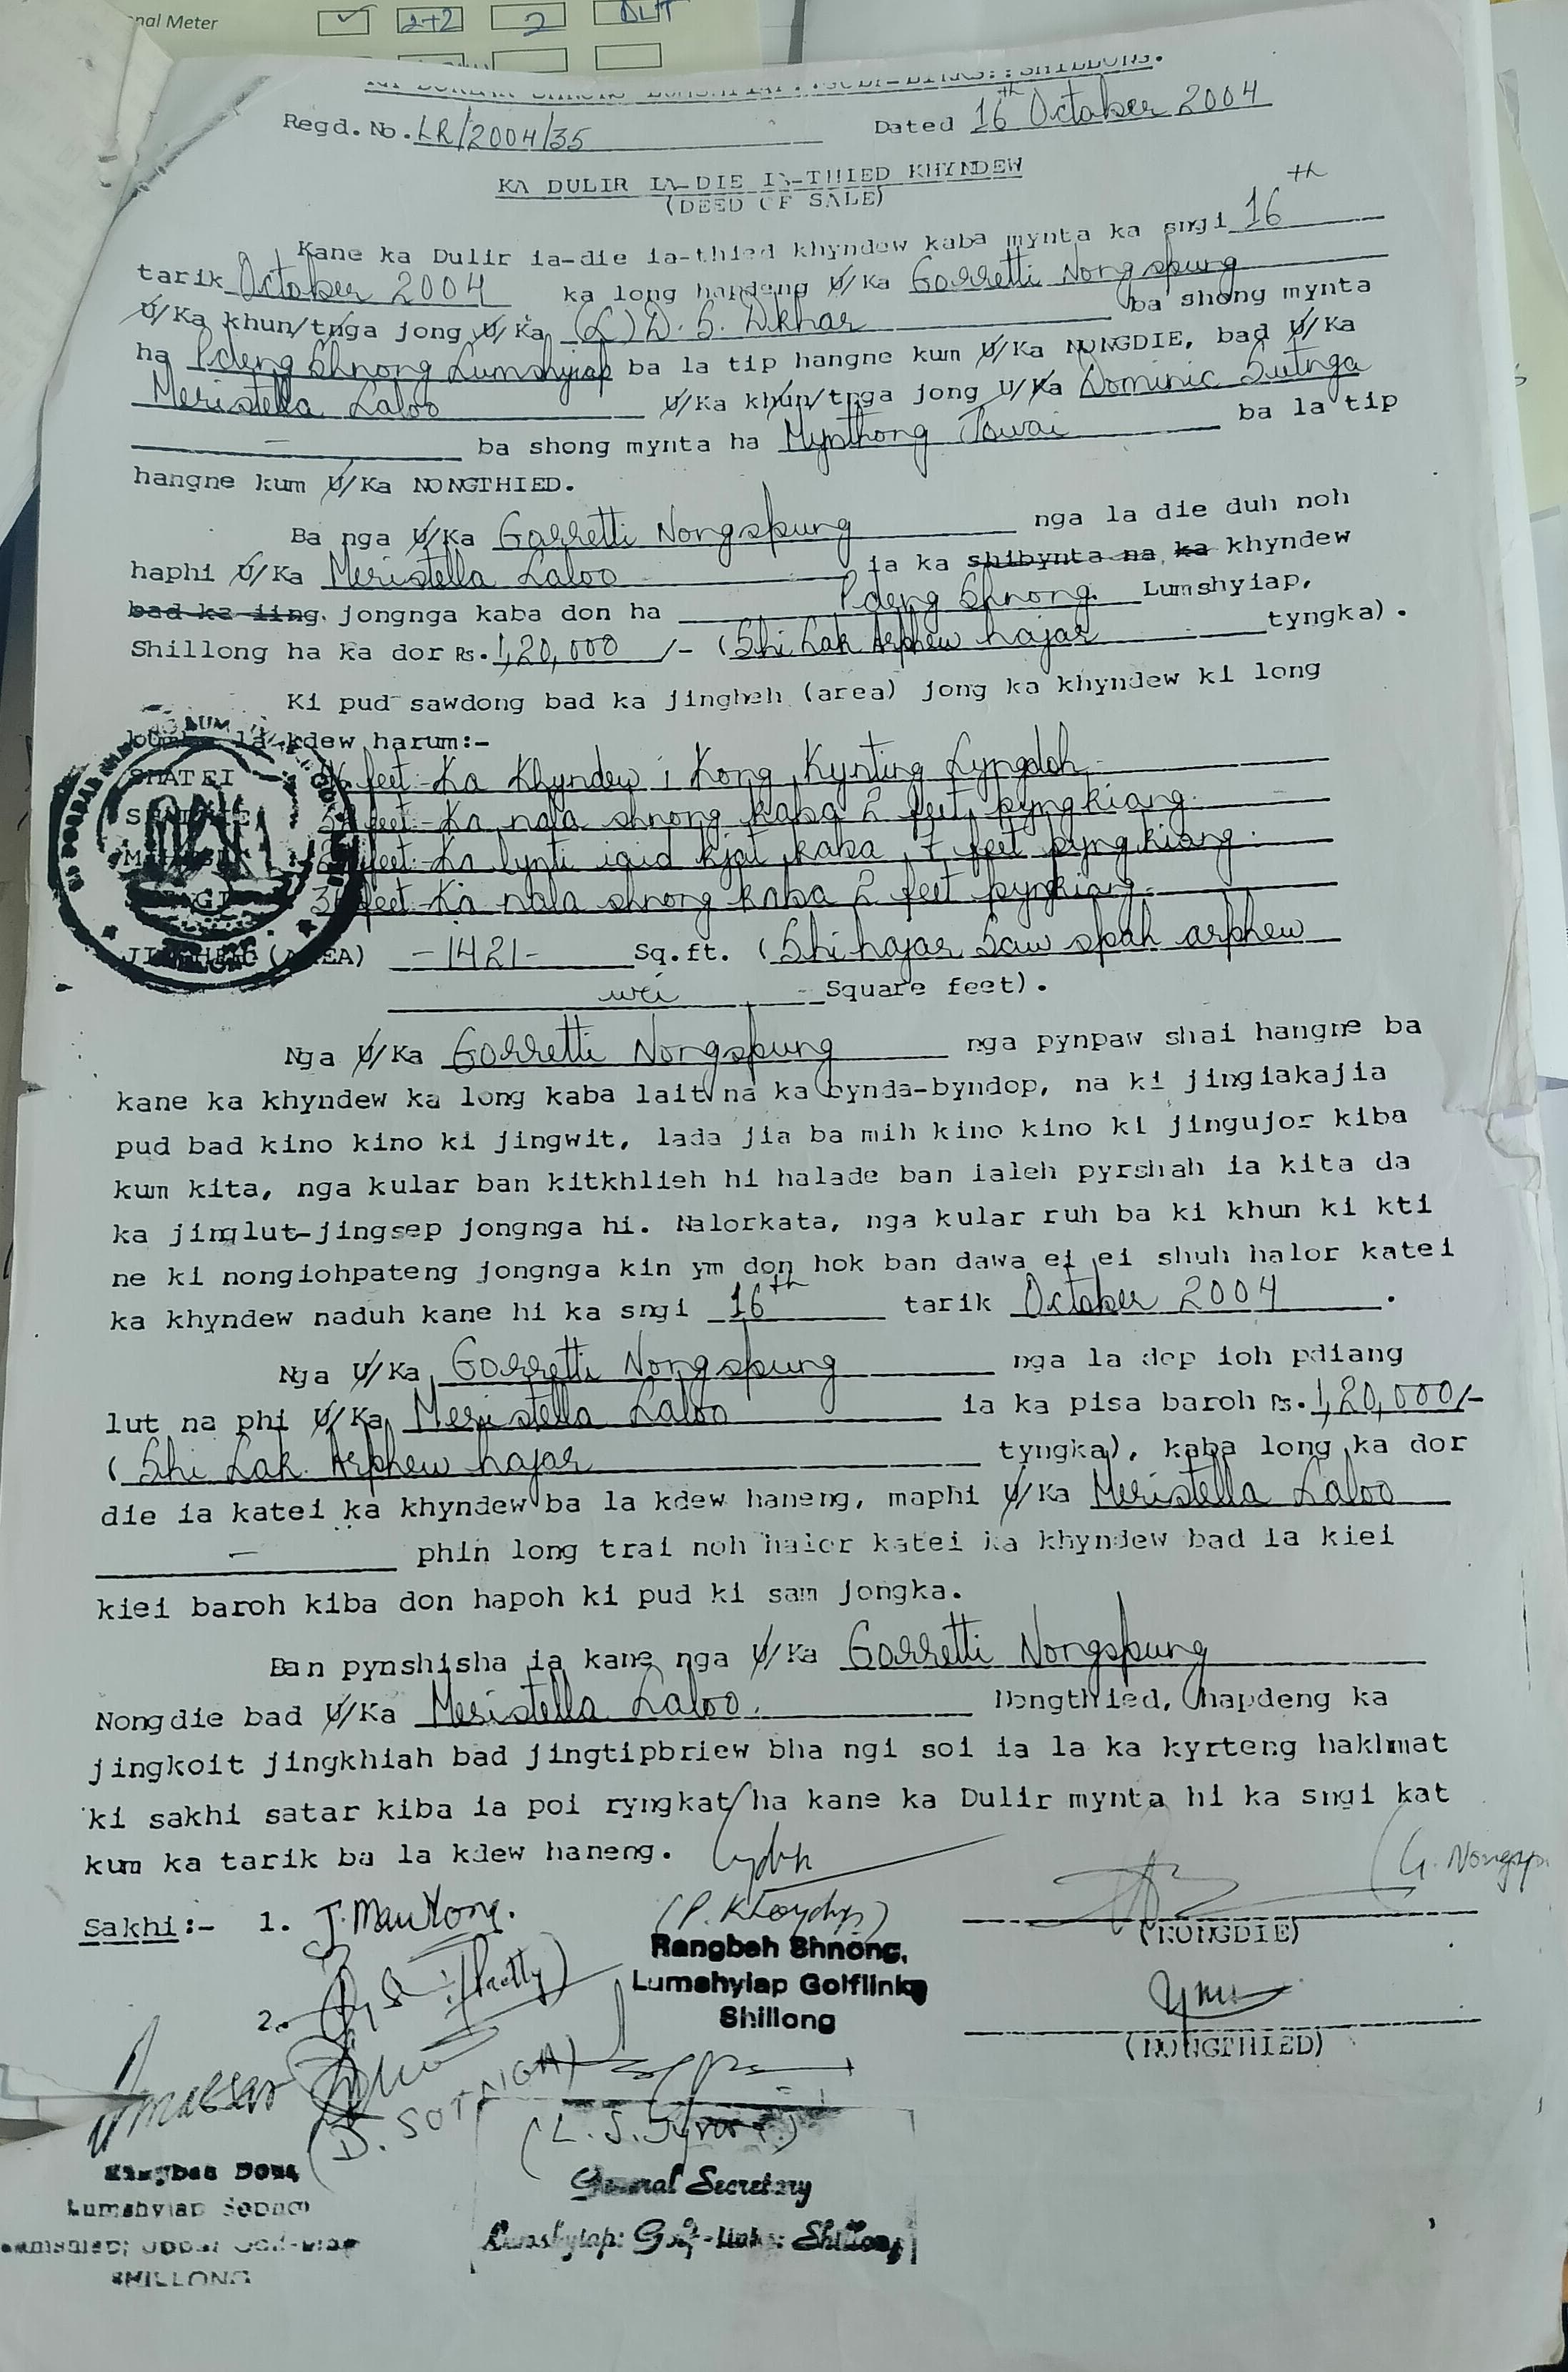 nal Meter
2+2 2
Regd. No. LR/2004/35 Dated 16th October 2004
KA DULIR IA-DIE IA-THIED KHYNDEW
(DEED OF SALE)
Kane ka Dulir ia-die ia-thied khyndew kaba mynta ka sngi 16th
tarik October 2004 ka long hapdeng U/Ka Gorretti Nongspung
U/Ka khun/tnga jong U/Ka (L) D. S. Dkhar ba shong mynta
ha Pdeng Shnong Lumshyiap ba la tip hangne kum U/Ka NONGDIE, bad U/Ka
Meristella Laloo U/Ka khun/tnga jong U/Ka Dominic Sutnga
ba shong mynta ha Mynthong Jowai ba la tip
hangne kum U/Ka NONGTHIED.
Ba nga U/Ka Gorretti Nongspung nga la die duh noh
haphi U/Ka Meristella Laloo ia ka shibynta na ka khyndew
bad ka iing jongnga kaba don ha Pdeng Shnong Lumshyiap,
Shillong ha ka dor Rs. 1,20,000 /- (Shi Lak Arphew hajar tyngka).
Ki pud sawdong bad ka jingheh (area) jong ka khyndew ki long
la kdew harum:-
SHATEI feet - Ka Khyndew i Kong Kynting Lyngdoh
feet - Ka nala shnong kaba 2 feet pyngkiang.
feet - Ka lynti iaid kjat kaba 7 feet pyngkiang.
feet - Ka nala shnong kaba 2 feet pyngkiang.
(AREA) -1421- Sq.ft. (Shi hajar Saw spah arphew
wei Square feet).
Nga U/Ka Gorretti Nongspung nga pynpaw shai hangne ba
kane ka khyndew ka long kaba lait na ka bynda-byndop, na ki jingiakajia
pud bad kino kino ki jingwit, lada jia ba mih kino kino ki jingujor kiba
kum kita, nga kular ban kitkhlieh hi halade ban ialeh pyrshah ia kita da
ka jinglut-jingsep jongnga hi. Nalorkata, nga kular ruh ba ki khun ki kti
ne ki nongiohpateng jongnga kin ym don hok ban dawa ei ei shuh halor katei
ka khyndew naduh kane hi ka sngi 16th tarik October 2004.
Nga U/Ka Gorretti Nongspung nga la dep ioh pdiang
lut na phi U/Ka Meristella Laloo ia ka pisa baroh Rs. 1,20,000/-
(Shi Lak Arphew hajar tyngka), kaba long ka dor
die ia katei ka khyndew ba la kdew haneng, maphi U/Ka Meristella Laloo
— phin long trai noh halor katei ka khyndew bad ia kiei
kiei baroh kiba don hapoh ki pud ki sam jongka.
Ban pynshisha ia kane nga U/Ka Gorretti Nongspung
Nongdie bad U/Ka Meristella Laloo. Nongthied, hapdeng ka
jingkoit jingkhiah bad jingtipbriew bha ngi soi ia la ka kyrteng hakhmat
ki sakhi satar kiba ia poi ryngkat ha kane ka Dulir mynta hi ka sngi kat
kum ka tarik ba la kdew haneng.
G. Nongspu
Sakhi:- 1. J. Mawlong.
(NONGDIE)
Rangbah Shnong,
Lumshyiap Golflinks
Shillong
2.
(NONGTHIED)
(D. SOTNGA)
Rangbah Dong
Lumshyiap
SHILLONG
General Secretary
Lumshyiap: Golf-Links: Shillong